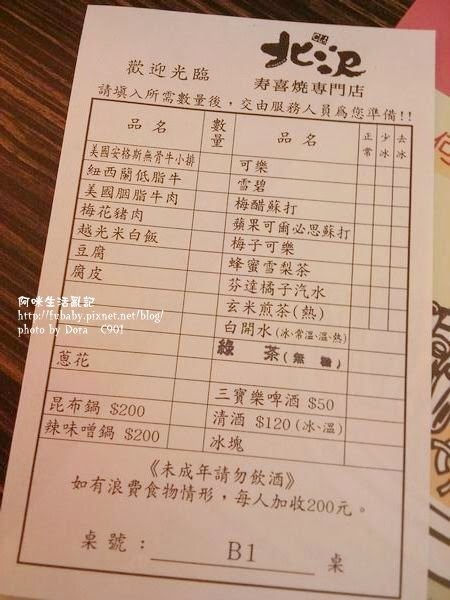 北澤
歡迎光臨
寿喜燒專門店
請填入所需數量後，交由服務人員爲您準備!!
品名 數量 品名 正常 少冰 去冰
美國安格斯無骨牛小排 可樂
紐西蘭低脂牛 雪碧
美國胭脂牛肉 梅醋蘇打
梅花豬肉 蘋果可爾必思蘇打
越光米白飯 梅子可樂
豆腐 蜂蜜雪梨茶
腐皮 芬達橘子汽水
玄米煎茶(熱)
白開水(冰、常溫、溫、熱)
綠茶(無糖)
蔥花
三寶樂啤酒 $50
昆布鍋 $200 清酒 $120(冰、溫)
辣味噌鍋 $200 冰塊
《未成年請勿飲酒》
如有浪費食物情形，每人加收200元。
桌號： B1 桌
阿咪生活亂記
http://fubaby.pixnet.net/blog/
photo by Dora C901